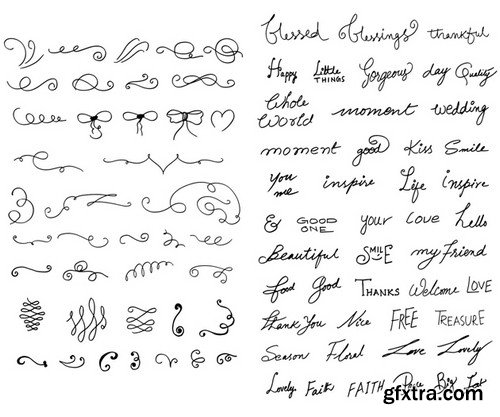 blessed blessings thankful
Happy Little THINGS Gorgeous day Quality
Whole World moment wedding
moment good Kiss Smile
You me inspire Life inspire
& GOOD ONE your love hello
Beautiful SMILE my Friend
food Good THANKS Welcome LOVE
Thank You Nice FREE TREASURE
Season Floral Love Lovely
Lovely Faith FAITH Big
gfxtra.com